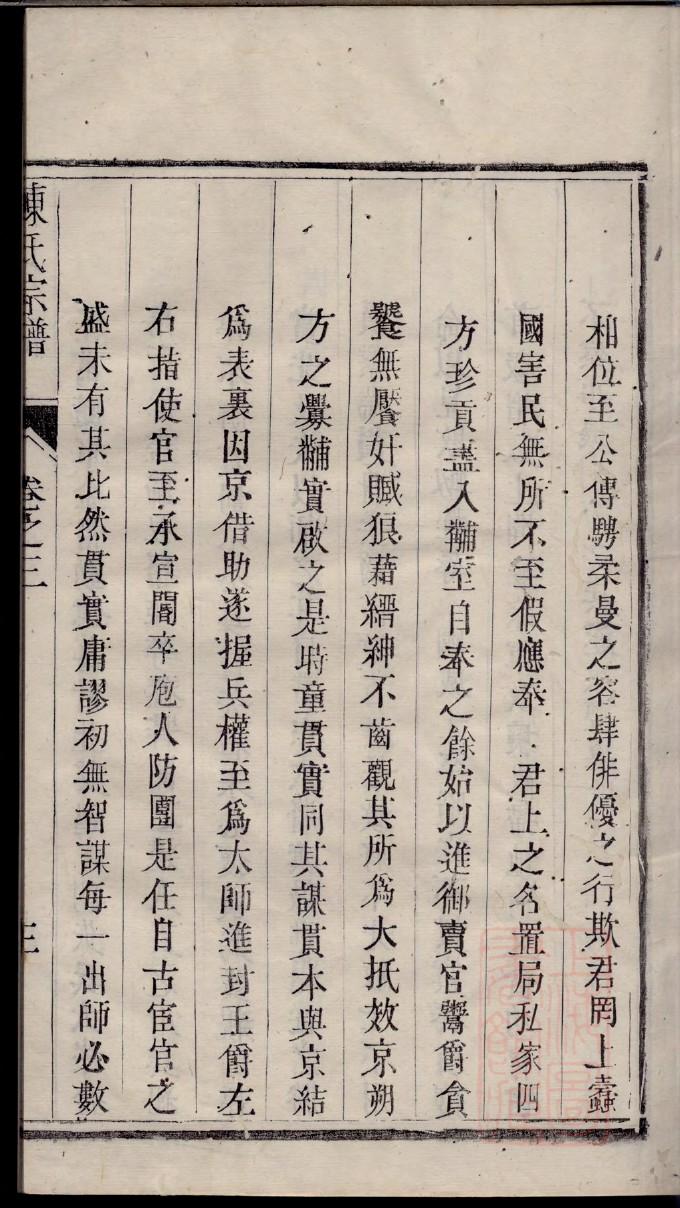 相位至公傅騁柔曼之容肆俳優之行欺君罔上蠹
國害民無所不至假應奉君上之名置局私家四
方珍貢盡入黼室自奉之餘始以進御賣官鬻爵貪
饕無厭奸贓狼藉縉紳不齒觀其所爲大抵效京朔
方之釁黼實啟之是時童貫實同其謀貫本與京結
爲表裏因京借助遂握兵權至爲太師進封王爵左
右指使官至承宣閽卒庖人防團是任自古宦官之
盛未有其比然貫實庸謬初無智謀每一出師必數
陳氏宗譜
卷之三
三